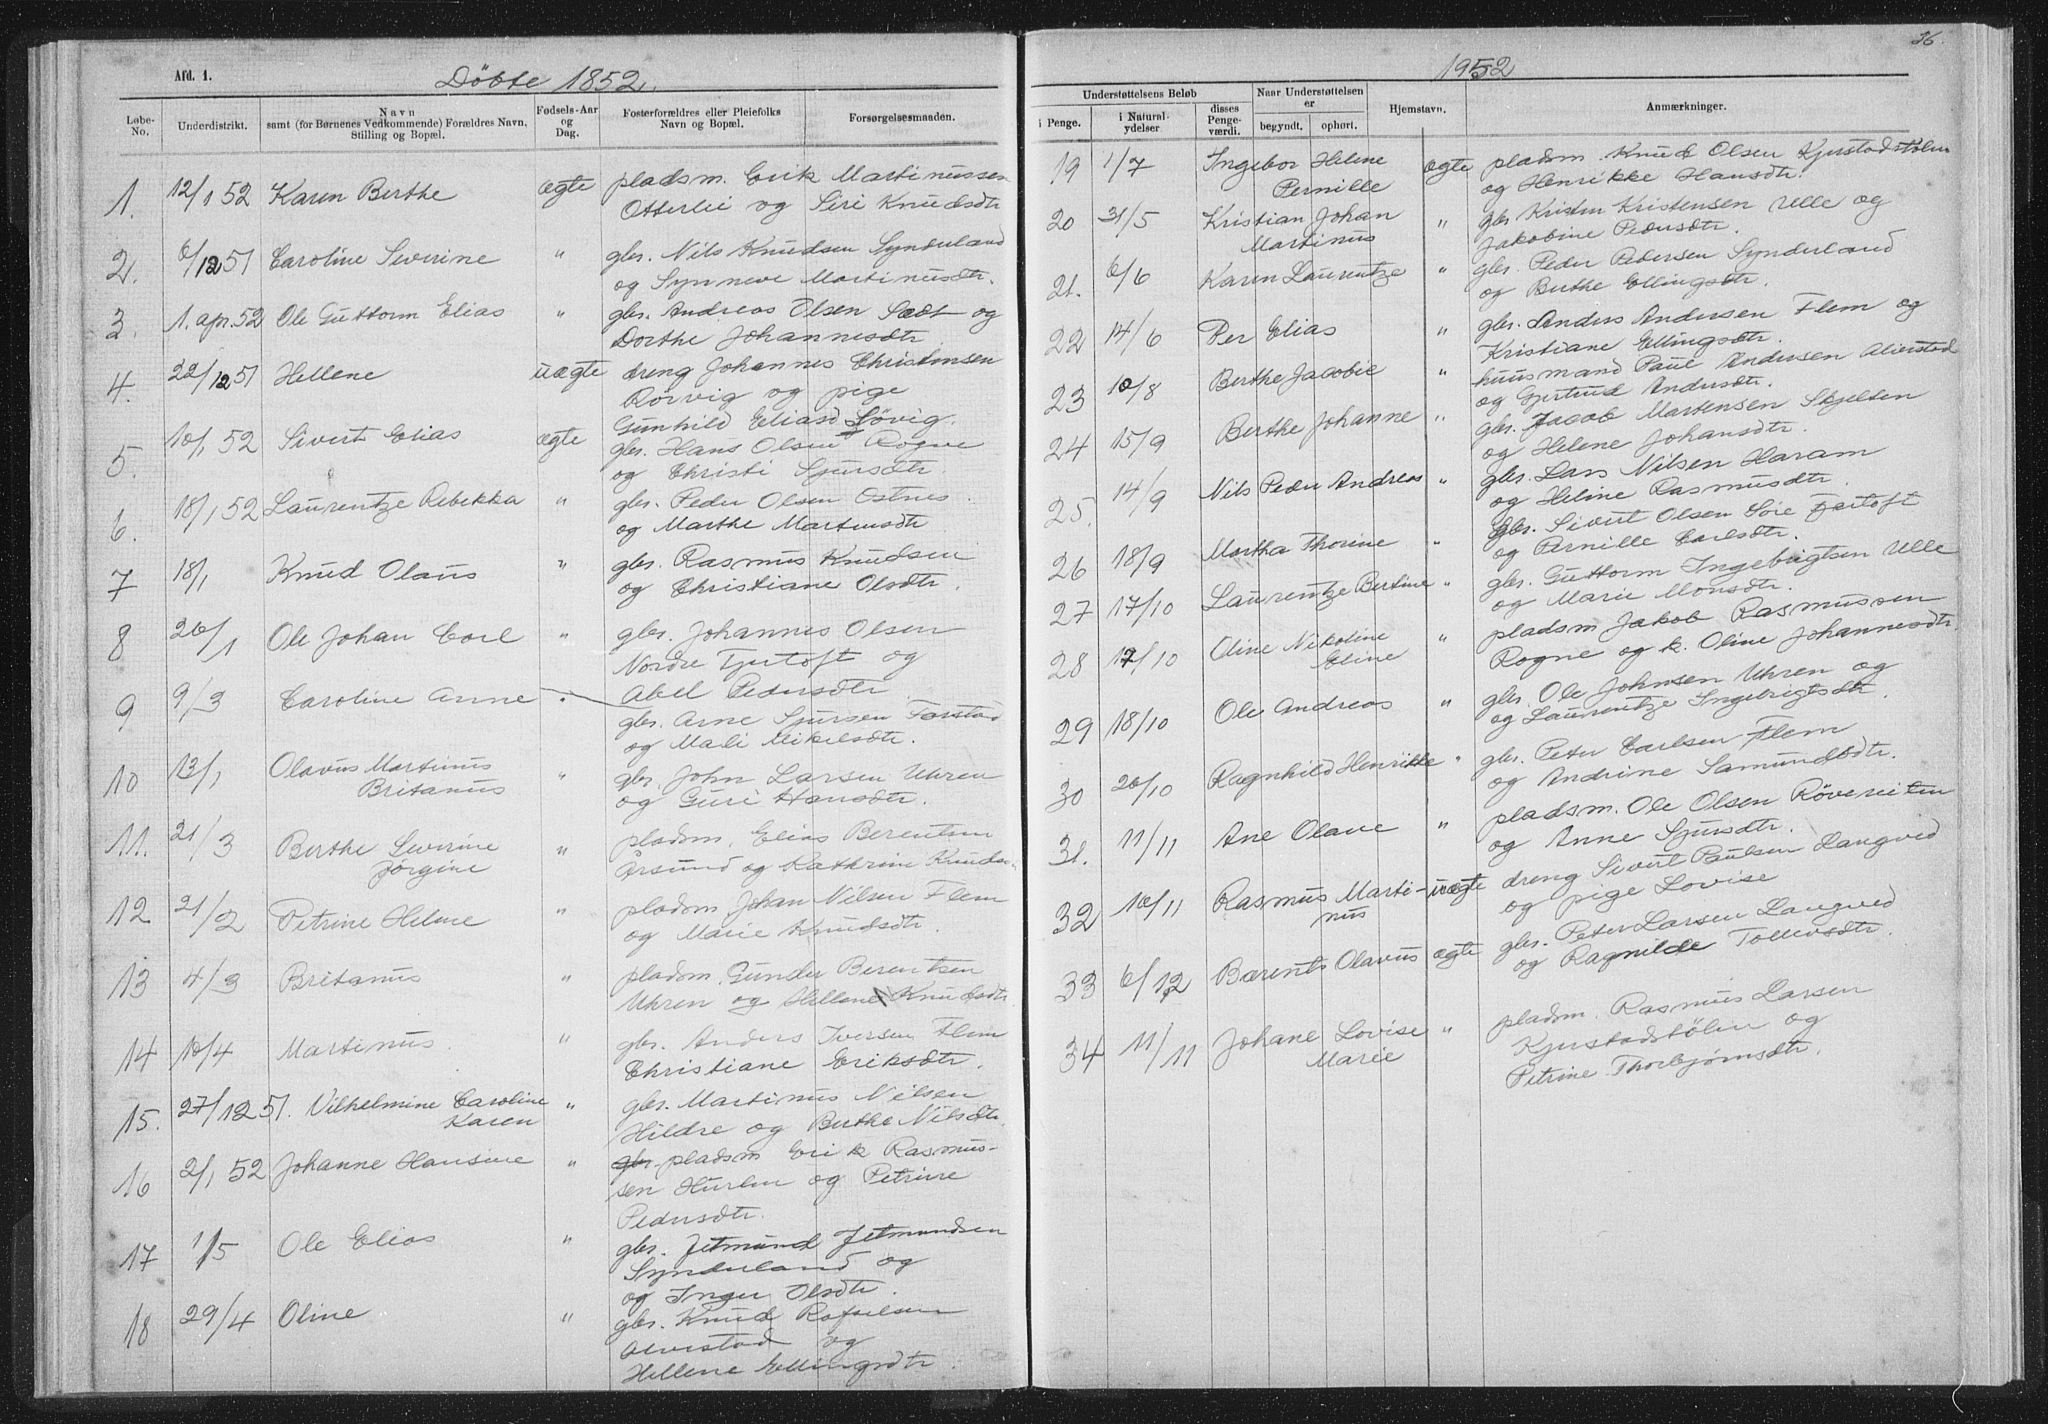 Afd. 1.
Döbte 1852.
Løbe-No.
Underdistrikt.
Navn
samt (for Børnenes Vedkommende) Forældres Navn,
Stilling og Bopæl.
Fødsels-Aar
og
Dag.
Fosterforældres eller Pleiefolks
Navn og Bopæl.
Forsørgelsesmaaden.
1. 12/1 52 Karen Berthe ægte pladsm. Erik Martinussen
Otterlei og Siri Knudsdtr
2. 6/12 51 Caroline Siverine " gbr. Nils Knudsen Synderland
og Synneve Martinusdtr.
3. 1. apr. 52 Ole Guttorm Elias " gbr. Andreas Olsen Sædt og
Dorthe Johannesdtr
4. 22/12 51 Hellene uægte dreng Johannes Christensen
Rörvig og pige
Gunhild Eliasd Lövig.
5. 10/1 52 Sivert Elias ægte gbr. Hans Olsen Rogne
og Christi Sjursdtr.
6. 18/1 52 Laurentze Rebekka " gbr. Peder Olsen Ostnes.
og Marthe Martinsdtr
7 18/1 Knud Olaus " gbr. Rasmus Knudsen
og Christiane Olsdtr.
8 26/1 Ole Johan Carl " gbr. Johannes Olsen
Nordre Tjertoft og
Abel Pedersdtr
9 9/3 Caroline Anne " gbr. Arne Sjursen Farstad
og Mali Mikelsdtr.
10 13/1 Olavus Martinus
Britanus " gbr. John Larsen Uhren
og Guri Hansdtr.
11. 21/3 Berthe Severine
Jörgine " pladsm. Elias Berentsen
Årsund og Kathrine Knudsd.
12 21/2 Petrine Helene " pladsm Johan Nilsen Flem
og Marie Knudsdtr.
13 4/3 Britanus " pladsm. Gunder Berentsen
Uhren og Hellene Knudsdtr.
14 10/4 Martinus. " gbr. Anders Iversen Flem
Christiane Eriksdtr.
15. 27/12 51. Vilhelmine Caroline
Karen " gbr. Martinus Nilsen
Hildre og Berthe Nilsdtr.
16 2/1 52 Johanne Hansine " gbr. pladsm Erik Rasmus-
sen Hurlen og Petrine
Pedersdtr.
17 1/5 Ole Elias " gbr. Jetmund Jetmundsen
Synderland og
og Inger Olsdtr.
18 29/4 Oline " gbr. Knud Rafaelsen
Alvestad og
Hellene Ellingsdtr.
36.
1952
Understøttelsens Beløb
i Penge.
i Natural-
ydelser
disses
Penge-
værdi.
Naar Understøttelsen
er
begyndt.
ophørt.
Hjemstavn.
Anmærkninger.
19 1/7 Ingebor Helene
Pernille ægte pladsm. Knud Olsen Kjerstadstölen
og Henrikke Hansdtr.
20 31/5 Kristian Johan
Martinus " gbr Kristen Kristensen Ulle og
Jakobine Pedersdtr.
21. 6/6 Karen Laurentze " gbr. Peder Pedersen Synderland
og Berthe Ellingsdtr.
22 14/6 Per Elias " gbr. Anders Andersen Flem og
Kristiane Ellingsdtr.
23 10/8 Berthe Jacobie " huusmand Paul Andersen Alvestad
og Gjertrud Andersdtr.
24 15/9 Berthe Johanne " gbr. Jacob Martensen Skjelten
og Helene Johansdtr.
25. 14/9 Nils Peder Andreas " gbr. Lars Nilsen Haram
og Heline Rasmusdtr.
26 18/9 Martha Thorine " gbr. Sivert Olsen Söre Tjertoft
og Pernille Carlsdtr.
27 17/10 Laurentze Bertine " gbr. Guttorm Ingebrigtsen Ulle
og Marie Monsdtr.
28 17/10 Oline Nikoline
Eline " pladsm Jakob Rasmussen
Rogne og k. Oline Johannesdtr.
29 18/10 Ole Andreas " gbr. Ole Johnsen Uhren og
og Laurentze Ingebrigtsdtr.
30 20/10 Ragnhild Henrikke " gbr. Peter Carlsen Flem
og Andrine Samundsdtr.
31. 11/11 Ane Olave " pladsm. Ole Olsen Rövereiten
og Anne Sjursdtr.
32 10/11 Rasmus Marti-
nus uægte dreng Sivert Paulsen Langved
og pige Lovise
33 6/12 Bærents Olavus ægte gbr. Peter Larsen Langved
og Ragnilde Tollevsdtr.
34 11/11 Johane Lovise
Marie " pladsm. Rasmus Larsen
Kjerstadstölen og
Petrine Thorbjørnsdtr.